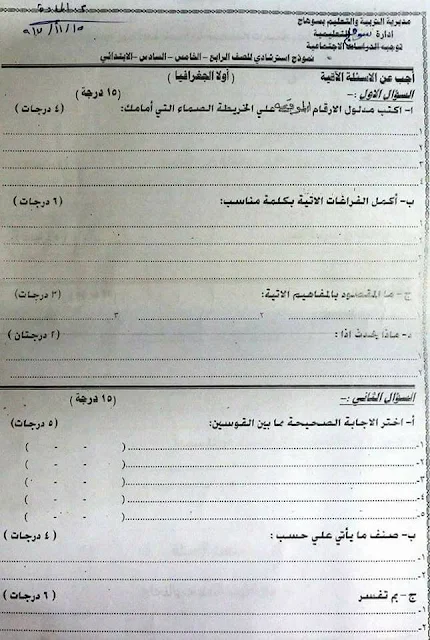 مديرية التربية والتعليم بسوهاج
ادارة سوهاج التعليمية
توجيه الدراسات الاجتماعية
نموذج استرشادي للصف الرابع - الخامس - السادس - الابتدائي
أجب عن الاسئلة الآتية (أولا الجغرافيا)
السؤال الاول :- (١٥ درجة)
ا- اكتب مدلول الارقام الموقعة علي الخريطة الصماء التي أمامك: (٤ درجات)
١
٢
٣
٤
ب- أكمل الفراغات الاتية بكلمة مناسب: (٦ درجات)
١
ج- ما المقصود بالمفاهيم الاتية: (٣ درجات)
٢ ٣
د- ماذا يحدث اذا : (٢ درجتان)
١
٢
السؤال الثاني :- (١٥ درجة)
أ- اختر الاجابة الصحيحة مما بين القوسين: (٥ درجات)
١- ( - - )
٢- ( - - )
٣- ( - - )
٤- ( - - )
٥- ( - - )
ب- صنف ما يأتي علي حسب : (٤ درجات)
١-
٢-
ج- بم تفسر (٦ درجات)
١-
٢-